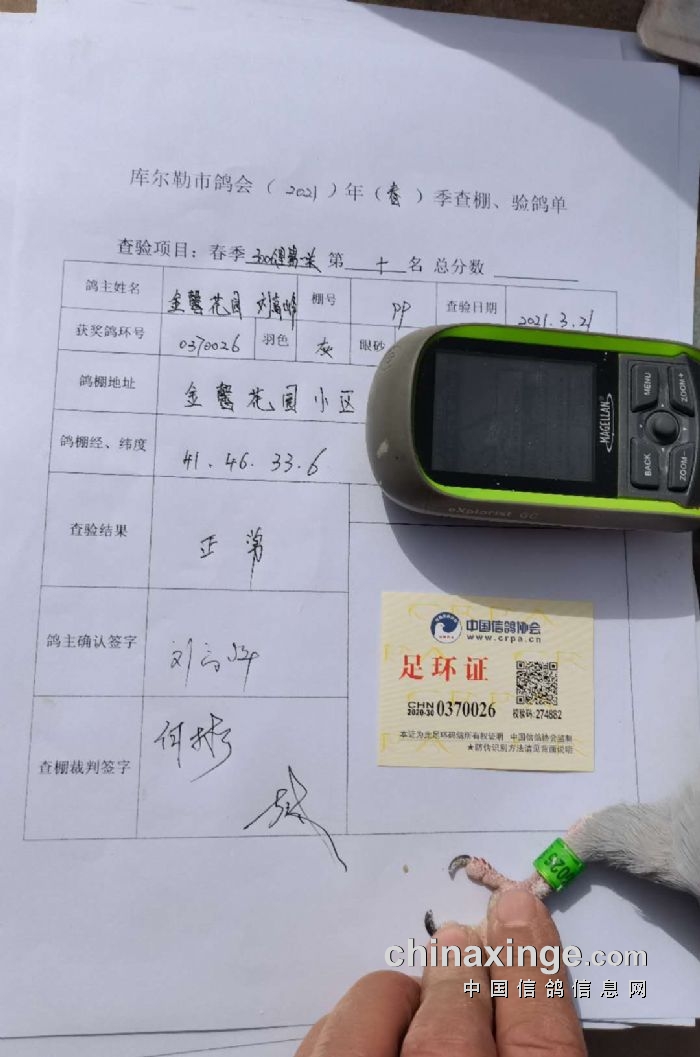 库尔勒市鸽会（2021）年（春）季查棚、验鸽单
查验项目：春季300浬第 十 名 总分数
鸽主姓名 金馨花园 刘富峰 棚号 PP 查验日期 2021.3.21
获奖鸽环号 0370026 羽色 灰 眼砂
鸽棚地址 金馨花园小区
鸽棚经、纬度 41.46.33.6
查验结果 正常
鸽主确认签字
查棚裁判签字
MENU
ZOOM+
BACK
ZOOM-
MAGELLAN
eXplorist GC
中国信鸽协会
www.crpa.cn
足环证
CHN
2020-30 0370026
校验码: 274882
本证为此足环码信鸽所有权证明 中国信鸽协会监制
★防伪识别方法请见背面说明
chinaxinge.com
中国信鸽信息网